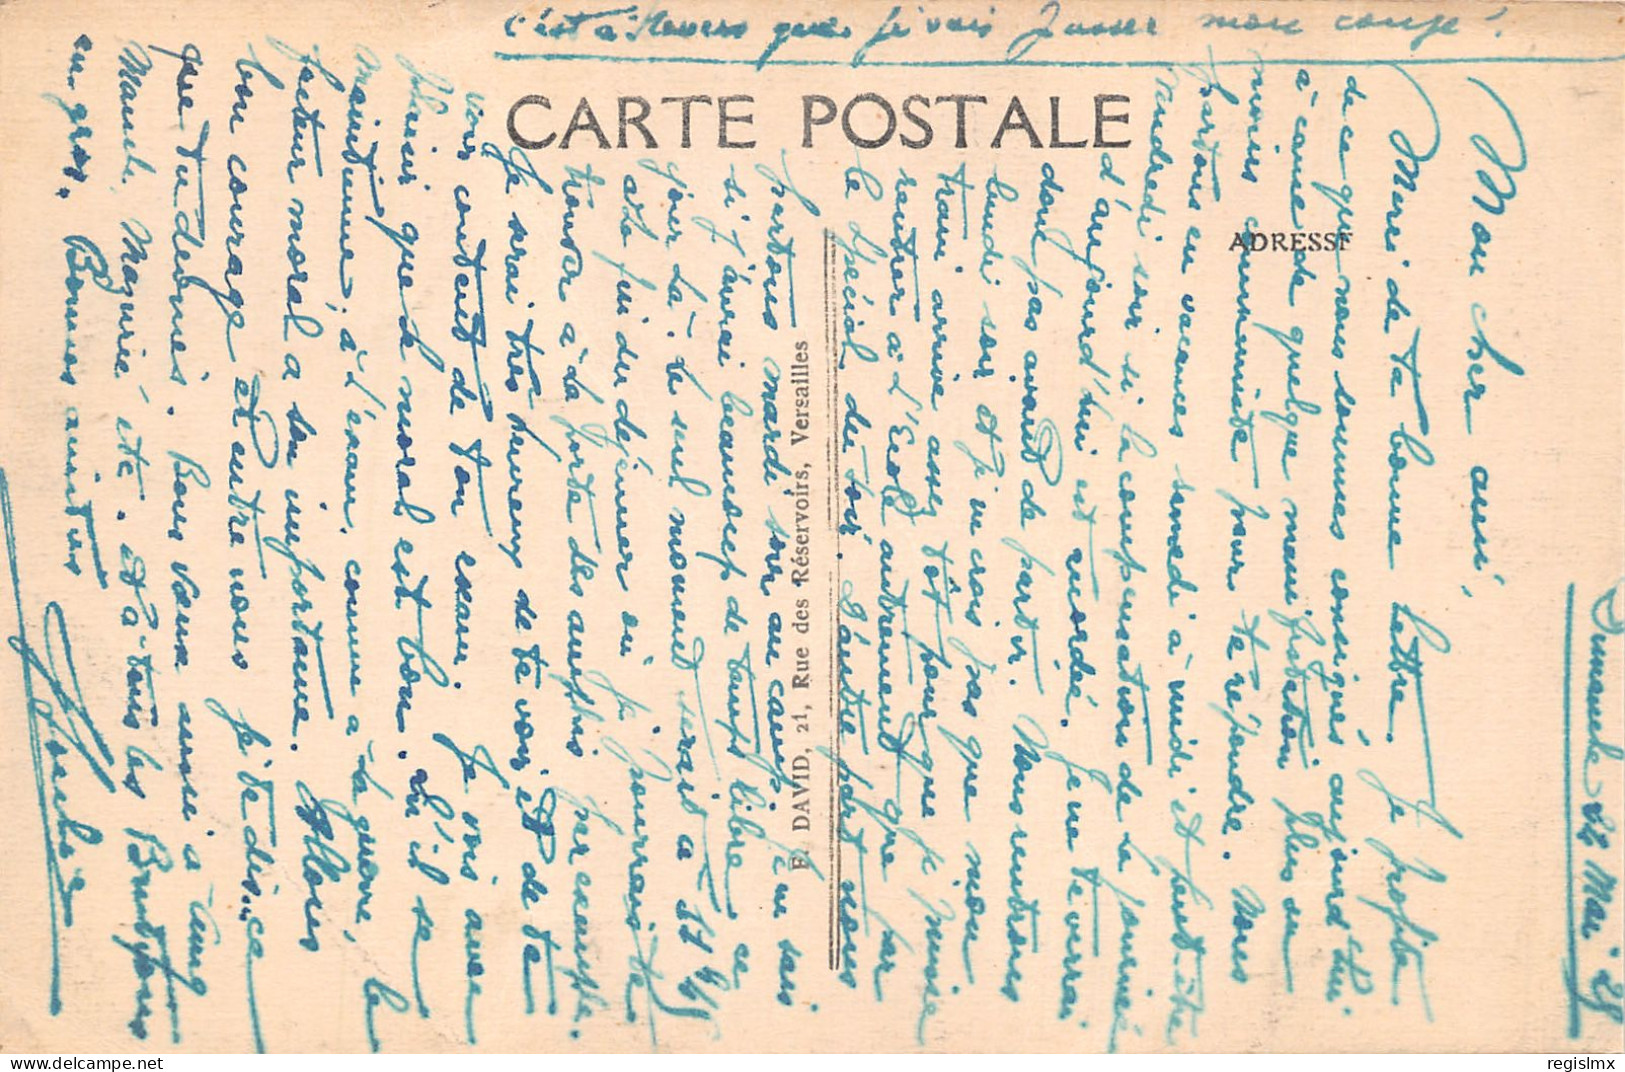 c'est à Nevers que je vais passer mon congé !
CARTE POSTALE
ADRESSE
F. DAVID, 21, Rue des Réservoirs, Versailles
Dimanche 27 Mai 28
Mon cher ami,
Merci de ta bonne lettre. Je profite
de ce que nous sommes consignés aujourd'hui
à cause de quelque manifestation plus ou
moins communiste pour te répondre. Nous
partons en vacances samedi à midi et peut-être
vendredi soir si la compensation de la journée
d'aujourd'hui est accordée. Je ne te verrai
donc pas avant de partir. Nous rentrons
lundi soir et je ne crois pas que mon
train arrive assez tôt pour que je puisse
rentrer à l'Ecole autrement que par
le spécial du soir. Peut-être nous
partons mardi soir au camp. Je ne sais
si j'aurai beaucoup de temps libre ce
jour là. Le seul moment serait à
à la fin du déjeuner où je pourrais te
trouver à la porte des amphis par exemple.
Je serai très heureux de te voir et de te
voir content de ton exam. Je vois avec
plaisir que le moral est bon. S'il se
maintienne à l'exam, comme à la guerre, le
facteur moral a son importance. Allons
bon courage et entre nous je te dis ... ce
que tu devines. Bons vœux aussi à
et à tous les
en gros. Bonnes amitiés